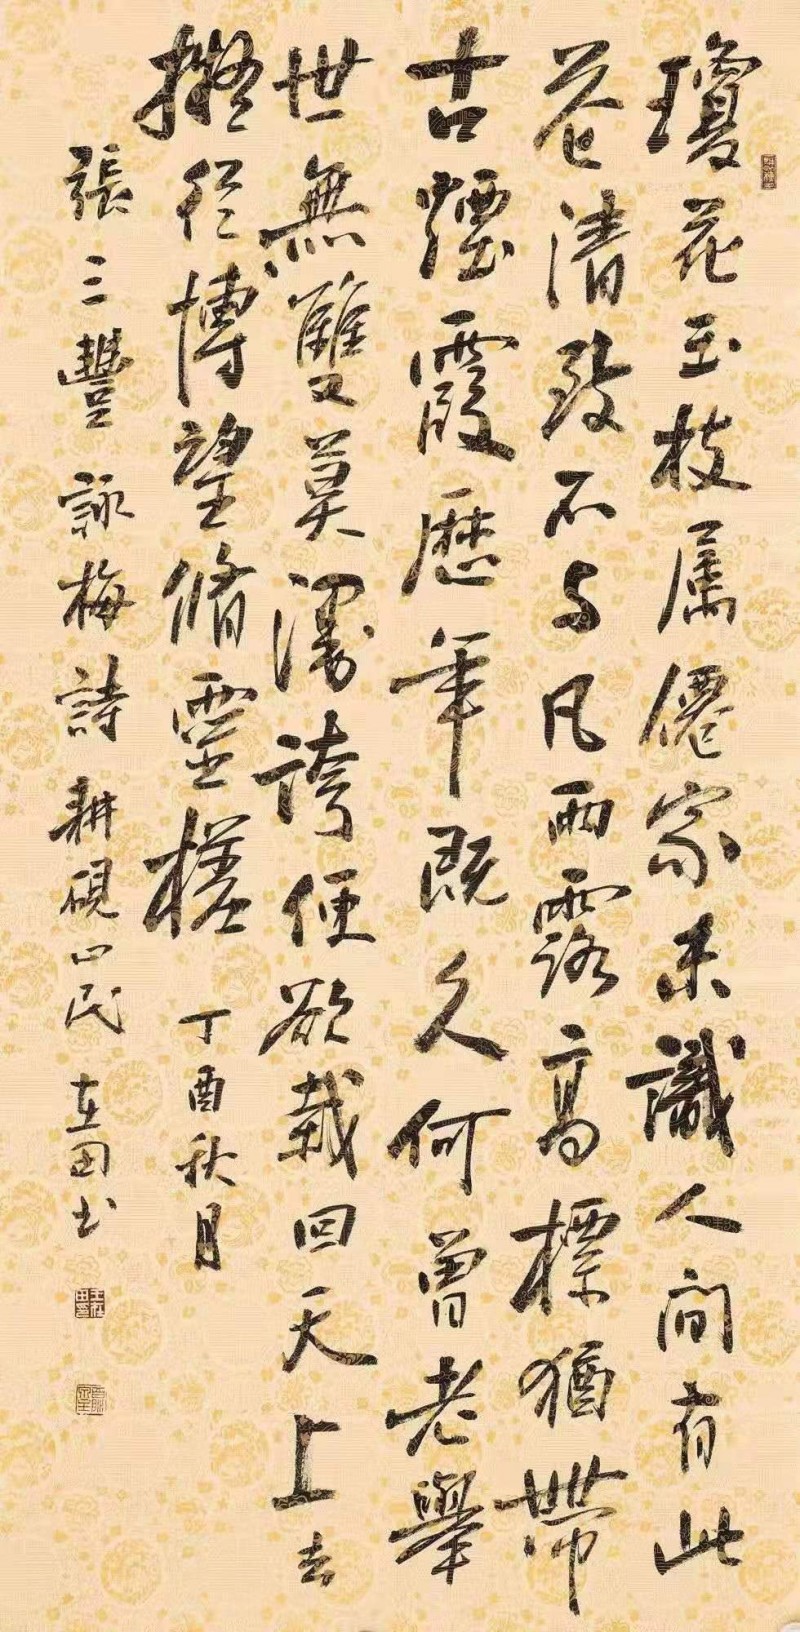 瓊花玉枝属僊家未識人间有此
花清致不与凡雨露高標猶帶
古煙霞歷年既久何曾老舉
世無雙莫漫誇便欲載回天上去
擬從博望脩靈槎 丁酉秋月
張三豐詠梅詩 耕硯山民 在田书